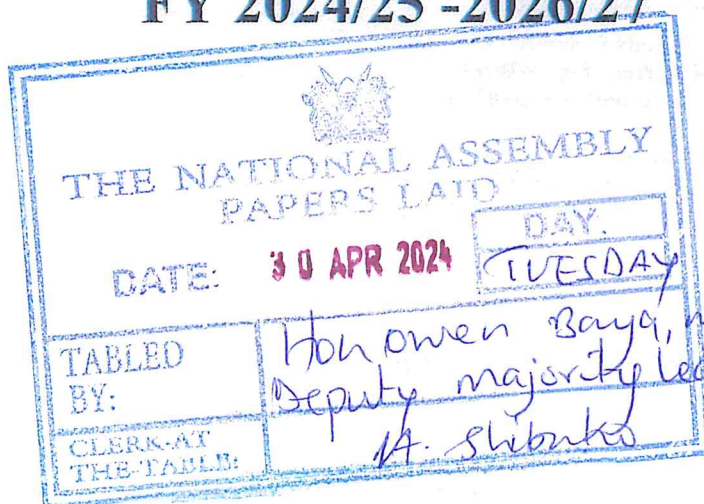 FY 2024/25 -2026/27
THE NATIONAL ASSEMBLY
PAPERS LAID
DATE: 30 APR 2024
DAY.
TUESDAY
TABLED BY:
Hon owen Baya, m
Deputy majority Lea
CLERK-AT THE-TABLE:
A. Shibuko